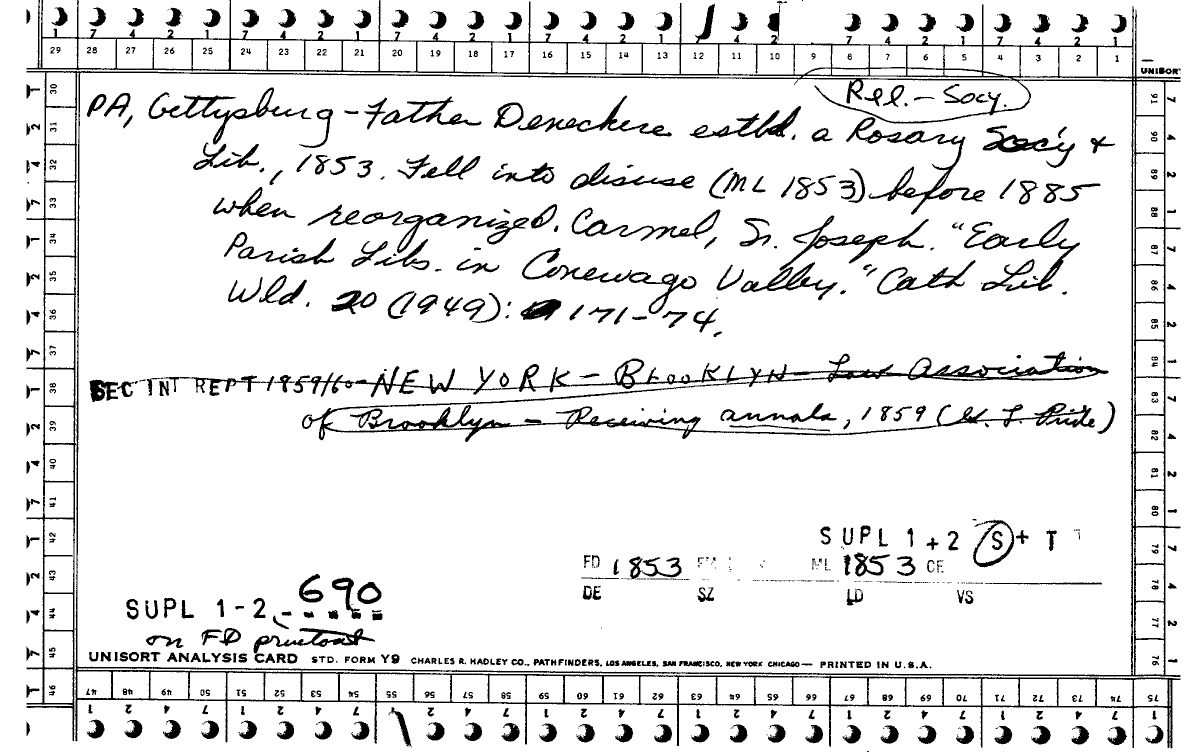 7 4 2 1 7 4 2 1 7 4 2 1 7 4 2 1 7 4 2 7 4 2 1 7 4 2 1
29 28 27 26 25 24 23 22 21 20 19 18 17 16 15 14 13 12 11 10 9 8 7 6 5 4 3 2 1
UNISORT
Rel.-Socy.
PA, Gettysburg-Father Deneckere estbd. a Rosary Socy &
Lib., 1853. Fell into disuse (ML 1853) before 1885
when reorganized. Carmel, Sr. Joseph. "Early
Parish Libs. in Conewago Valley." Cath Lib.
Wld. 20 (1949): 171-74.
SEC INT REPT 1859/60-NEW YORK-BROOKLYN-Law Association
of Brooklyn - Receiving annals, 1859 (W. L. Pride)
SUPL 1+2 S + T
FD 1853 ML 1853 CE
DE SZ LD VS
690
SUPL 1-2-
on FD printout
UNISORT ANALYSIS CARD STD. FORM Y9 CHARLES R. HADLEY CO., PATHFINDERS, LOS ANGELES, SAN FRANCISCO, NEW YORK CHICAGO — PRINTED IN U.S.A.
30 31 32 33 34 35 36 37 38 39 40 41 42 43 44 45 46
91 90 89 88 87 86 85 84 83 82 81 80 79 78 77 76 75
47 48 49 50 51 52 53 54 55 56 57 58 59 60 61 62 63 64 65 66 67 68 69 70 71 72 73 74 75